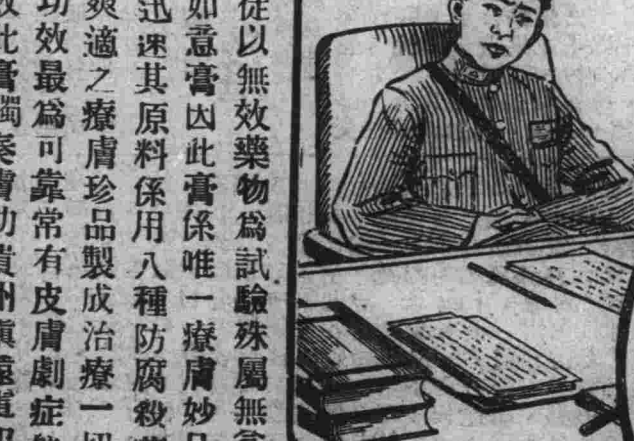 從以無效藥物爲試驗殊屬無
如意膏因此膏係唯一療膚妙
迅速其原料係用八種防腐殺
爽適之療膚珍品製成治療一切
功效最爲可靠常有皮膚劇症
此膏獨奏膚功貴州鎮遠